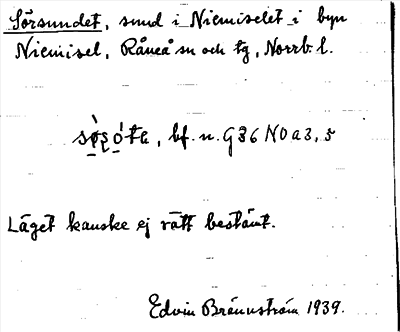 Sörsundet, sund i Niemiselet i byn
Niemisel, Råneå sn och tg, Norrb. l.
bf. n. G36 NO a3,5
Läget kanske ej rätt bestämt.
Edvin Brännström 1939.